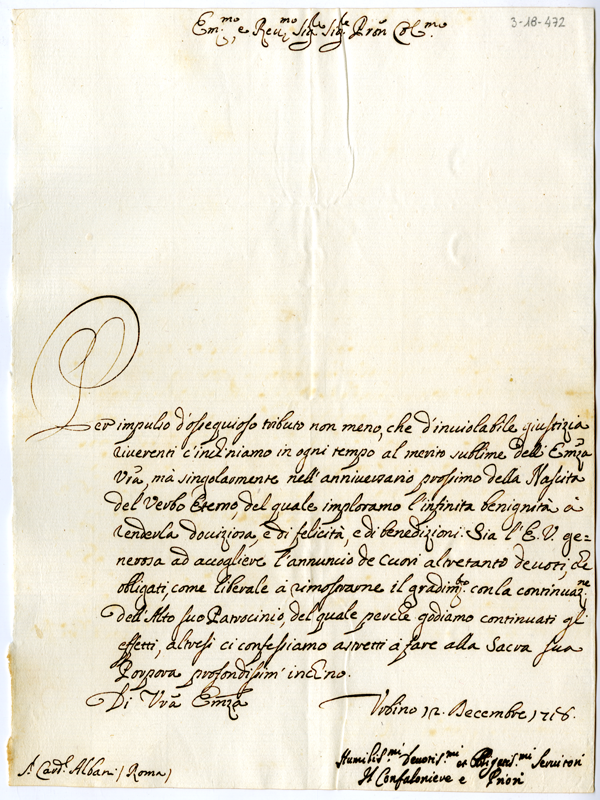 3-18-472
Em.mo, e Reu.mo Sig.re Sig.re Prōn Col.mo
Per impulso d'ossequioso tributo non meno, che d'inuiolabile giustizia
riuerenti c'inchiniamo in ogni tempo al merito sublime dell' Emz̄a
Vrā, mà singolarmente nell'anniuersario prossimo della Nascita
del Verbo Eterno, del quale imploramo l'infinita benignità à
renderla douiziosa, e di felicità, e di benedizioni. Sia l'E. V. ge=
nerosa ad accogliere l'annuncio de Cuori altretanto deuoti, che
obligati, come liberale à rimostrarne il gradim.to con la continuaz.ne
dell'Alto suo Patrocinio, del quale perche godiamo continuati gli
effetti, altresi ci confessiamo astretti à fare alla Sacra sua
Porpora profondissim' inchino.
Di Vrā Emz̄a
Vrbino 12. Decembre 1716.
A Card.l Albani (Roma)
Humilis.mi Deuotis.mi et Obligatis.mi Seruitori
Il Confaloniere e Priori